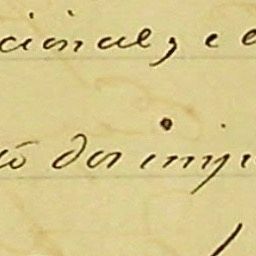 cional, e
to dos imp